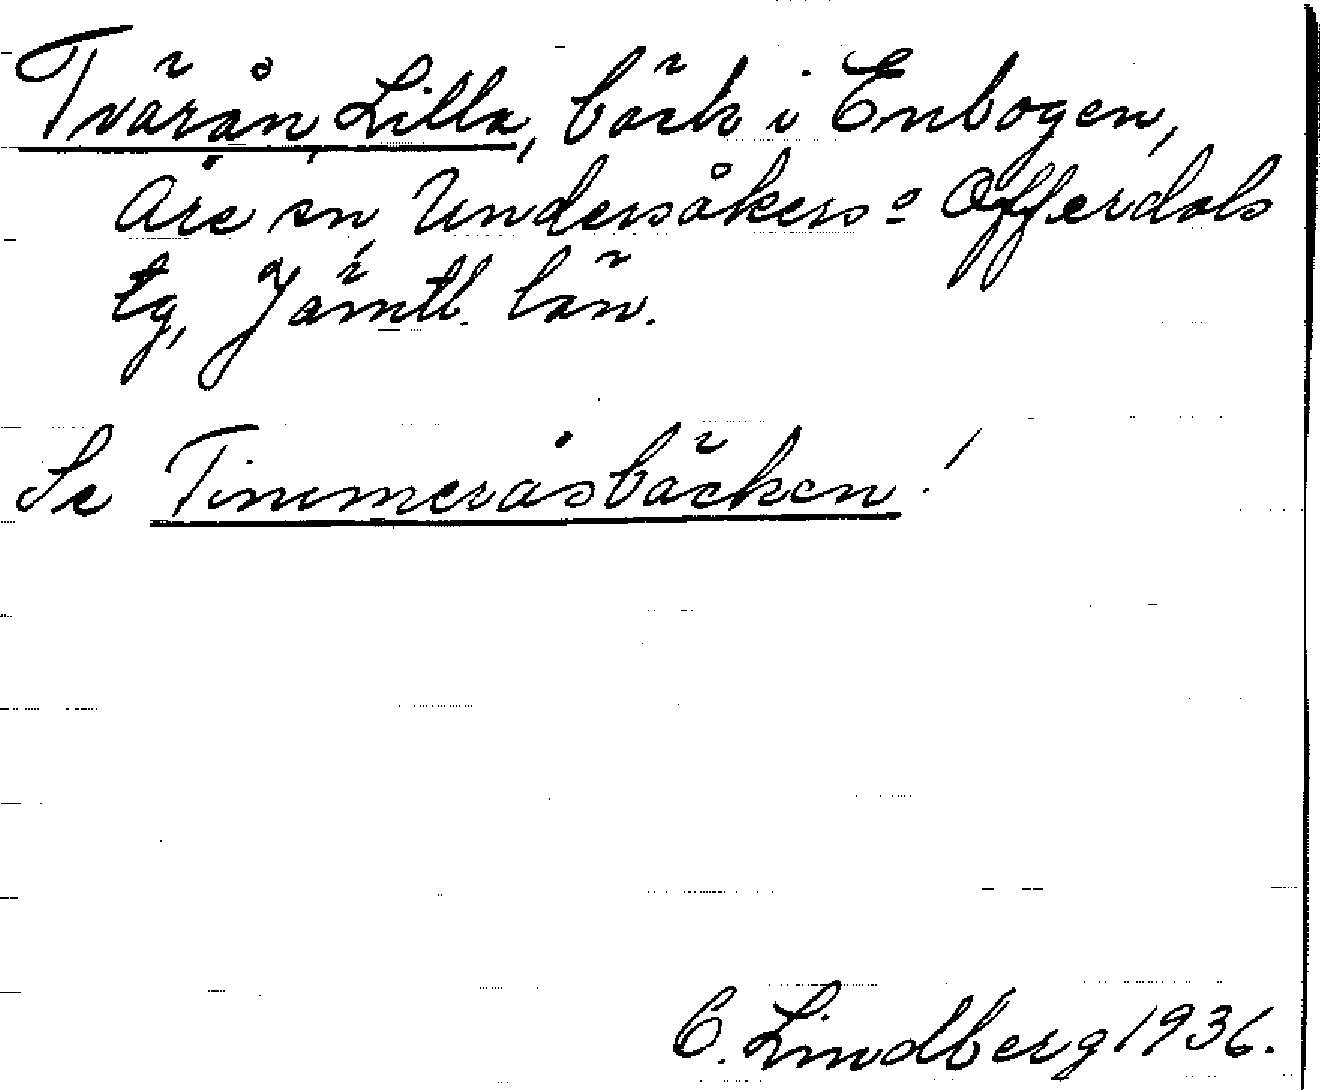 Tvärån, Lilla, bäck i Enbogen,
Åre sn, Undersåkers o Offerdals
tg, Jämtl. län.
Se Timmeråsbäcken!
C. Lindberg 1936.